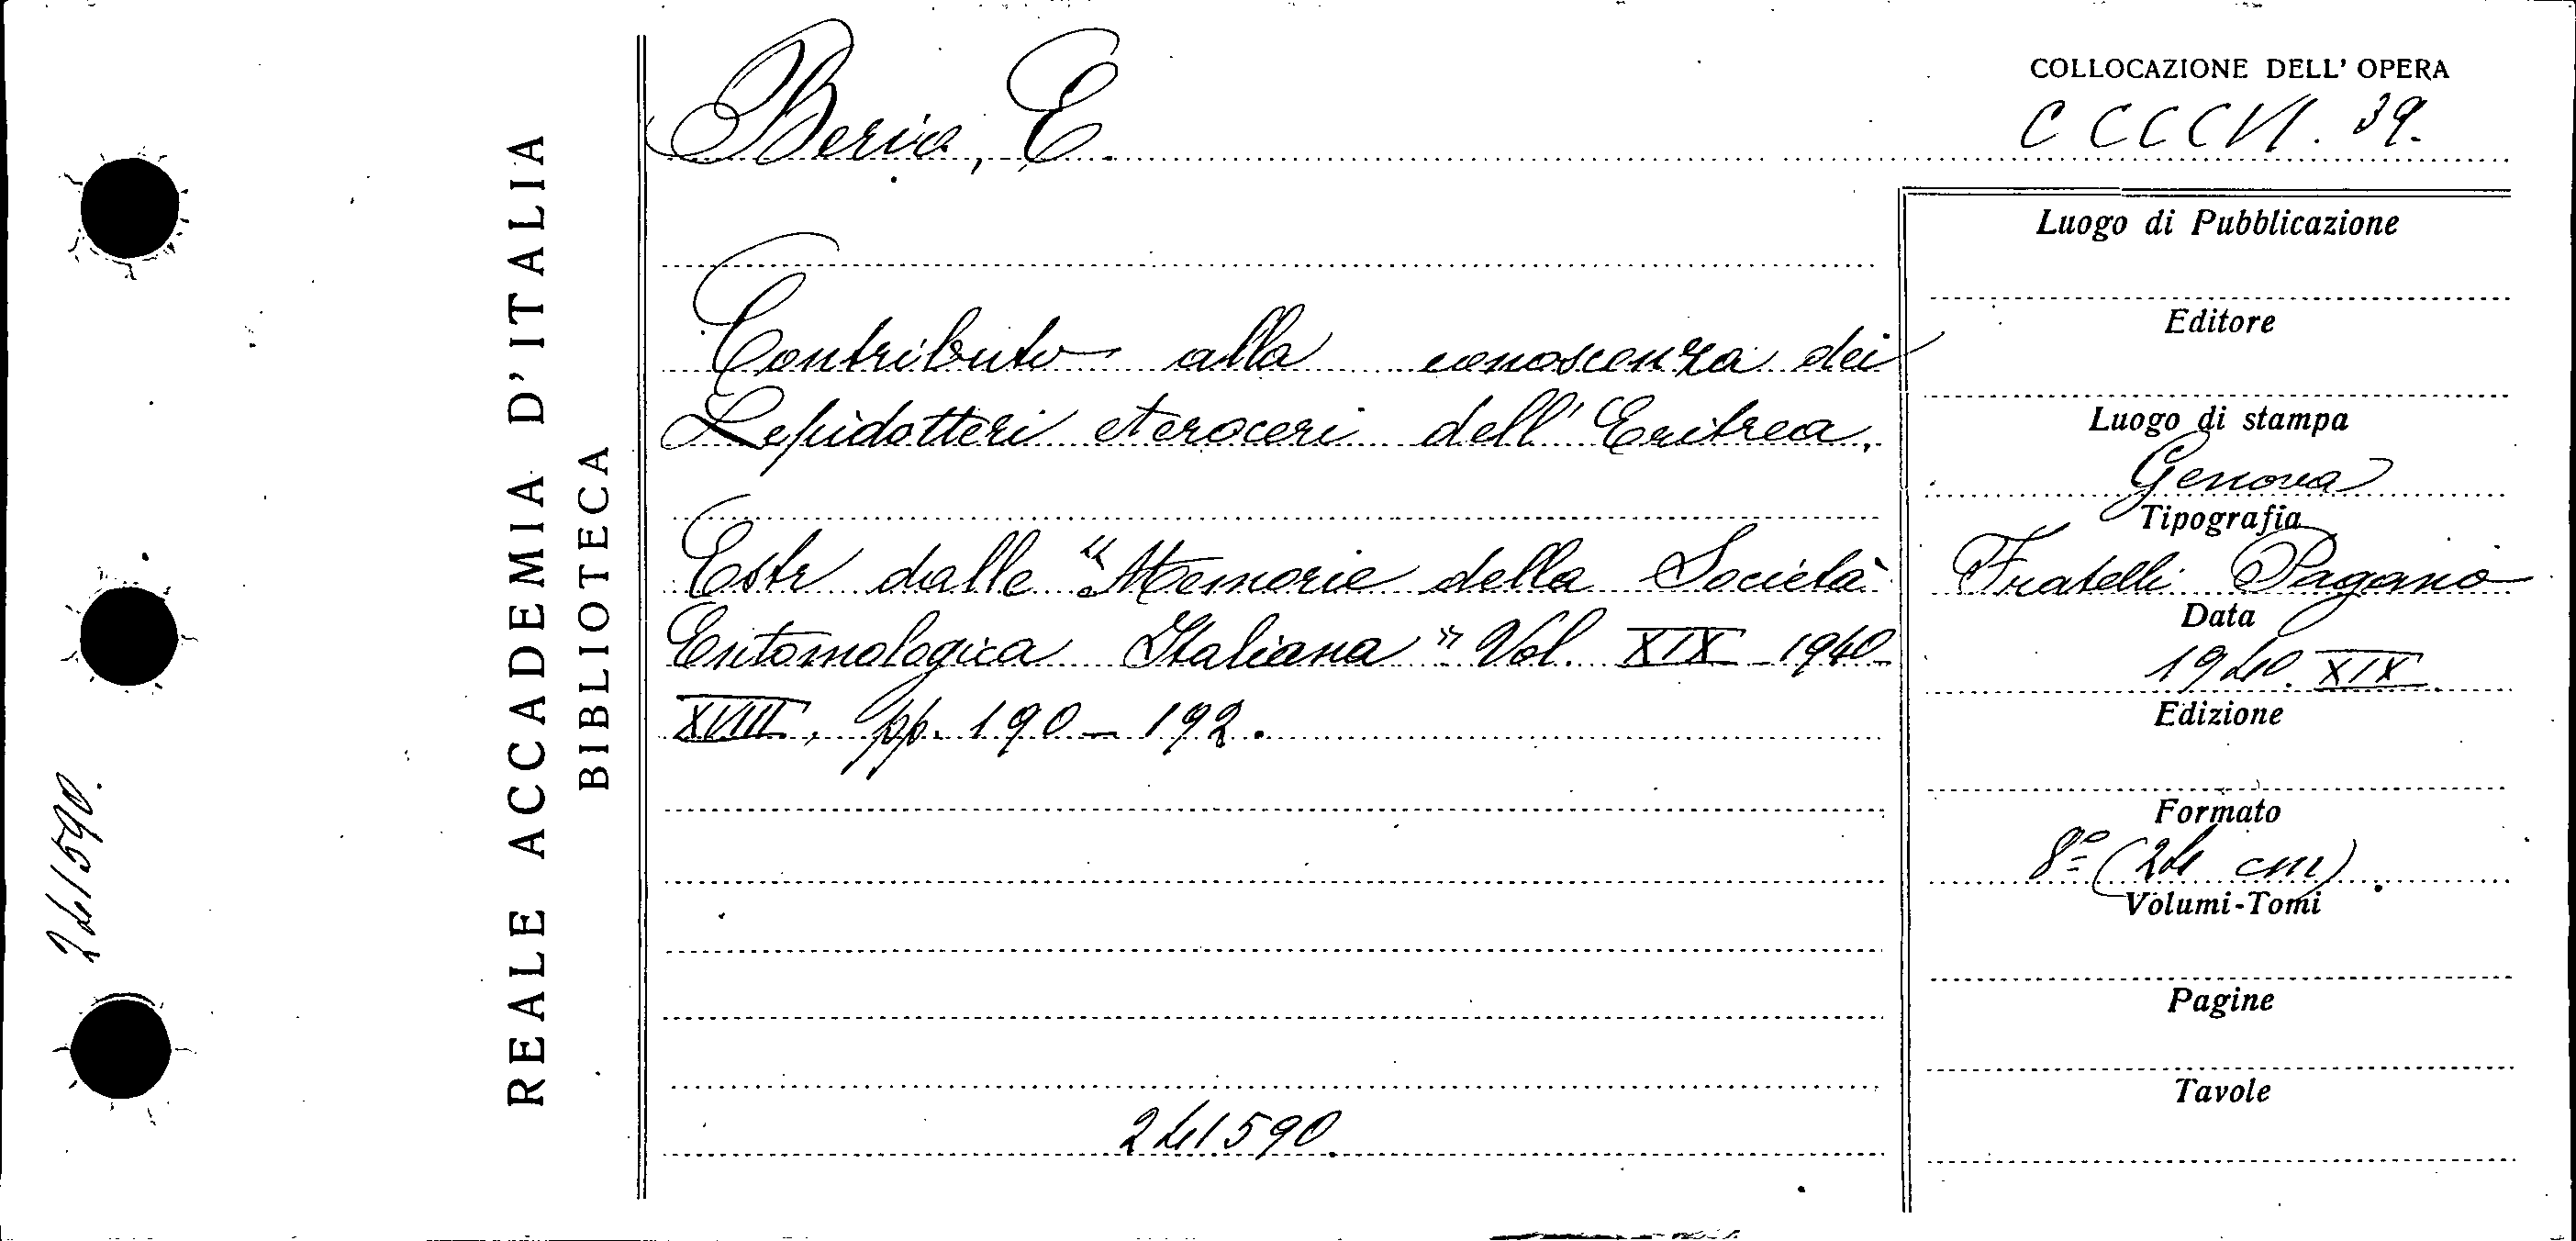 241590.
REALE ACCADEMIA D'ITALIA
BIBLIOTECA
Berio, E.
Contributo alla conoscenza dei
Lepidotteri eteroceri dell' Eritrea.
Estr dalle "Memorie della Società
Entomologica Italiana" Vol. XIX 1940
XVIII, pp. 190-192.
241590.
COLLOCAZIONE DELL' OPERA
CCCCVI. 39.
Luogo di Pubblicazione
Editore
Luogo di stampa
Genova
Tipografia
Fratelli Pagano
Data
1940. XIX
Edizione
Formato
8º (24 cm).
Volumi-Tomi
Pagine
Tavole